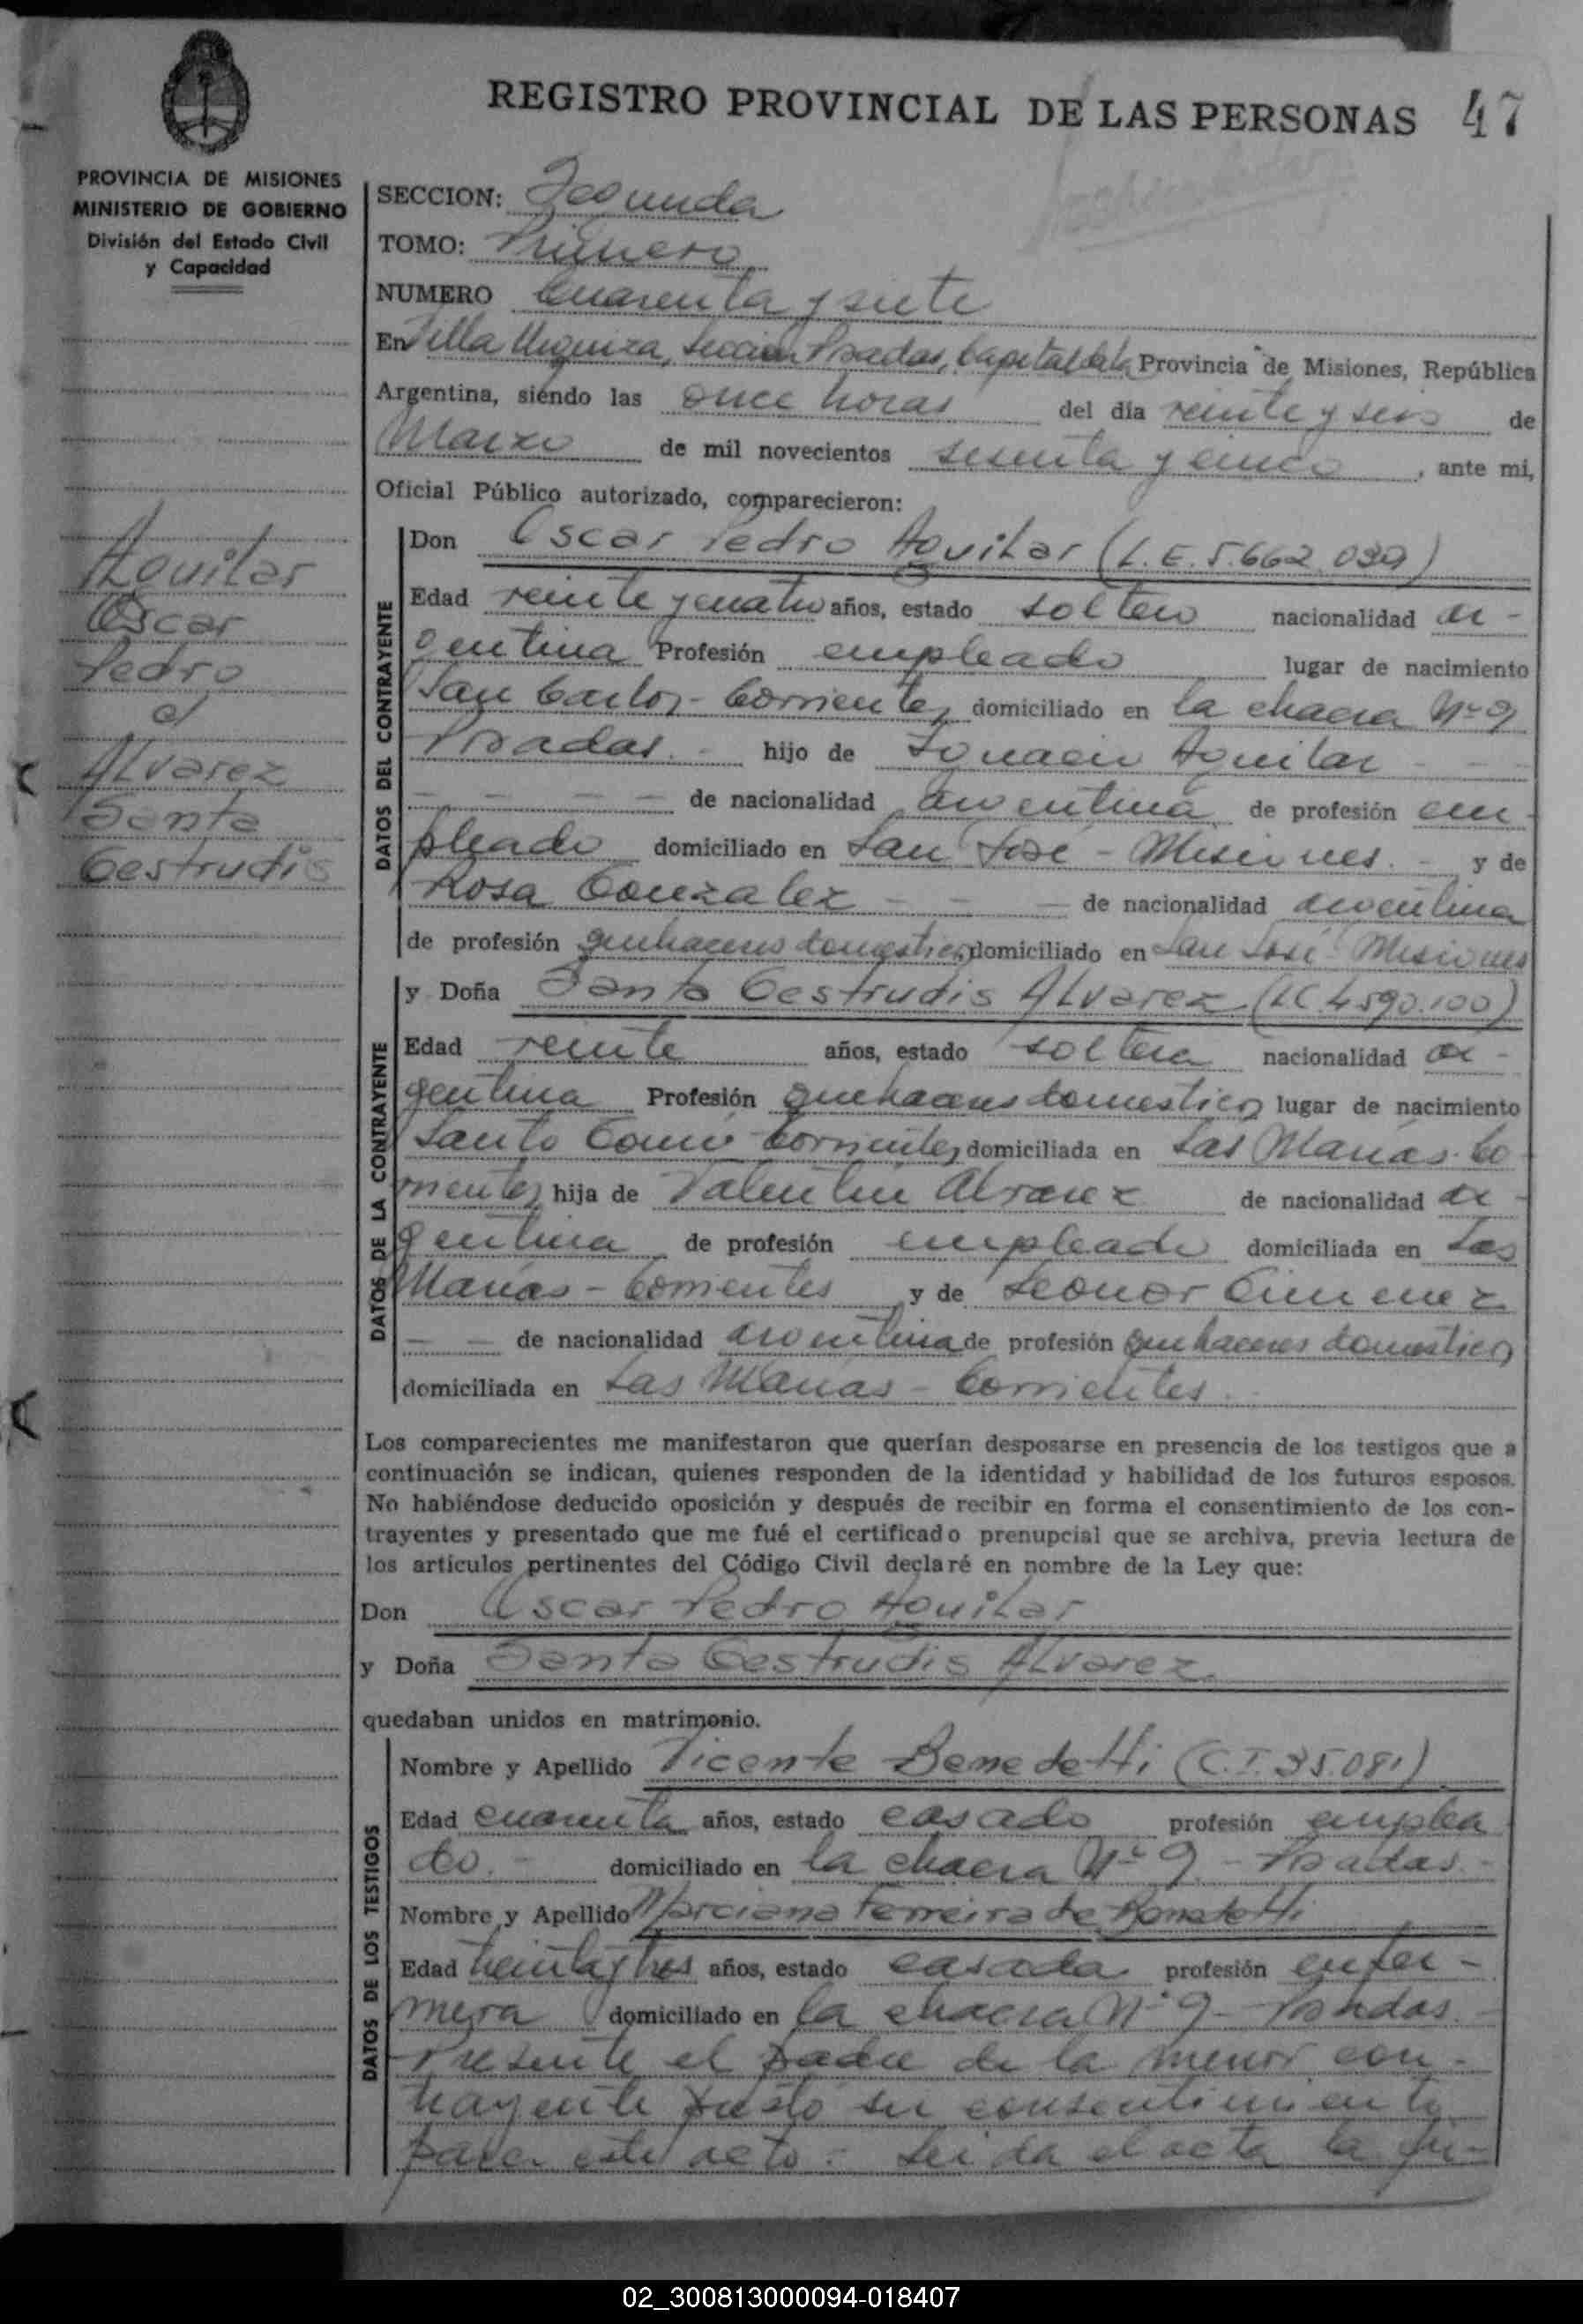 REGISTRO PROVINCIAL DE LAS PERSONAS 47
PROVINCIA DE MISIONES
MINISTERIO DE GOBIERNO
División del Estado Civil
y Capacidad
SECCION: Segunda
TOMO: Primero
NUMERO Cuarenta y siete
En Villa Urquiza, Sección Posadas, Capital de la Provincia de Misiones, República
Argentina, siendo las once horas del día veinte y seis de
Marzo de mil novecientos sesenta y cinco, ante mi,
Oficial Público autorizado, comparecieron:
Aguilar
Oscar
Pedro
c/
Alvarez
Santa
Gestrudis
DATOS DEL CONTRAYENTE
Don Oscar Pedro Aguilar (L.E. 5.662.039)
Edad veinte y cuatro años, estado soltero nacionalidad ar-
gentina Profesión empleado lugar de nacimiento
San Carlos - Corrientes domiciliado en la chacra Nº 9
Posadas. - hijo de Ignacio Aguilar - - -
- - - - de nacionalidad argentina de profesión em-
pleado domiciliado en San José - Misiones. - y de
Rosa Gonzalez - - - de nacionalidad argentina
de profesión quehaceres domesticos domiciliado en San José - Misiones
DATOS DE LA CONTRAYENTE
y Doña Santa Gestrudis Alvarez (LC 4.590.100)
Edad veinte años, estado soltera nacionalidad ar-
gentina Profesión quehaceres domesticos lugar de nacimiento
Santo Tomé - Corrientes domiciliada en Las Marías - Co
rrientes hija de Valentin Alvarez de nacionalidad ar-
gentina de profesión empleado domiciliada en Las
Marías - Corrientes y de Leonor Gimenez
- - de nacionalidad argentina de profesión quehaceres domesticos
domiciliada en Las Marías - Corrientes.
Los comparecientes me manifestaron que querían desposarse en presencia de los testigos que a
continuación se indican, quienes responden de la identidad y habilidad de los futuros esposos.
No habiéndose deducido oposición y después de recibir en forma el consentimiento de los con-
trayentes y presentado que me fué el certificado prenupcial que se archiva, previa lectura de
los artículos pertinentes del Código Civil declaré en nombre de la Ley que:
Don Oscar Pedro Aguilar
y Doña Santa Gestrudis Alvarez
quedaban unidos en matrimonio.
DATOS DE LOS TESTIGOS
Nombre y Apellido Vicente Benedetti (C.I. 35.081)
Edad cuarenta años, estado casado profesión emplea
do. - domiciliado en la chacra Nº 9 - Posadas. -
Nombre y Apellido Marciana Ferreira de Benedetti
Edad treinta y tres años, estado casada profesión enfer-
mera domiciliado en la chacra Nº 9 - Posadas. -
Presente el padre de la menor con-
trayente prestó su consentimiento
para este acto. - Leida el acta la fir-
02_300813000094-018407